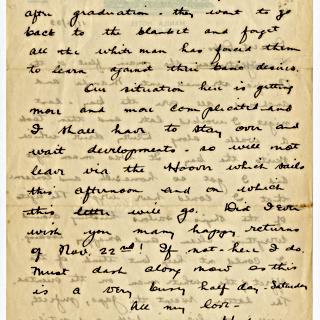 after graduation, they want to go
back to the blanket and forget
all the white man has forced them
to learn against their base desires.
Our situation here is getting
more and more complicated and
I shall have to stay over and
wait developments - so will not
leave via the Hoover which sails
this afternoon and on which
this letter will go. Did I ever
wish you many happy returns
of Nov. 22nd! If not - here I do.
Must dash along now as this
is a very busy half day - Saturday
All my love -